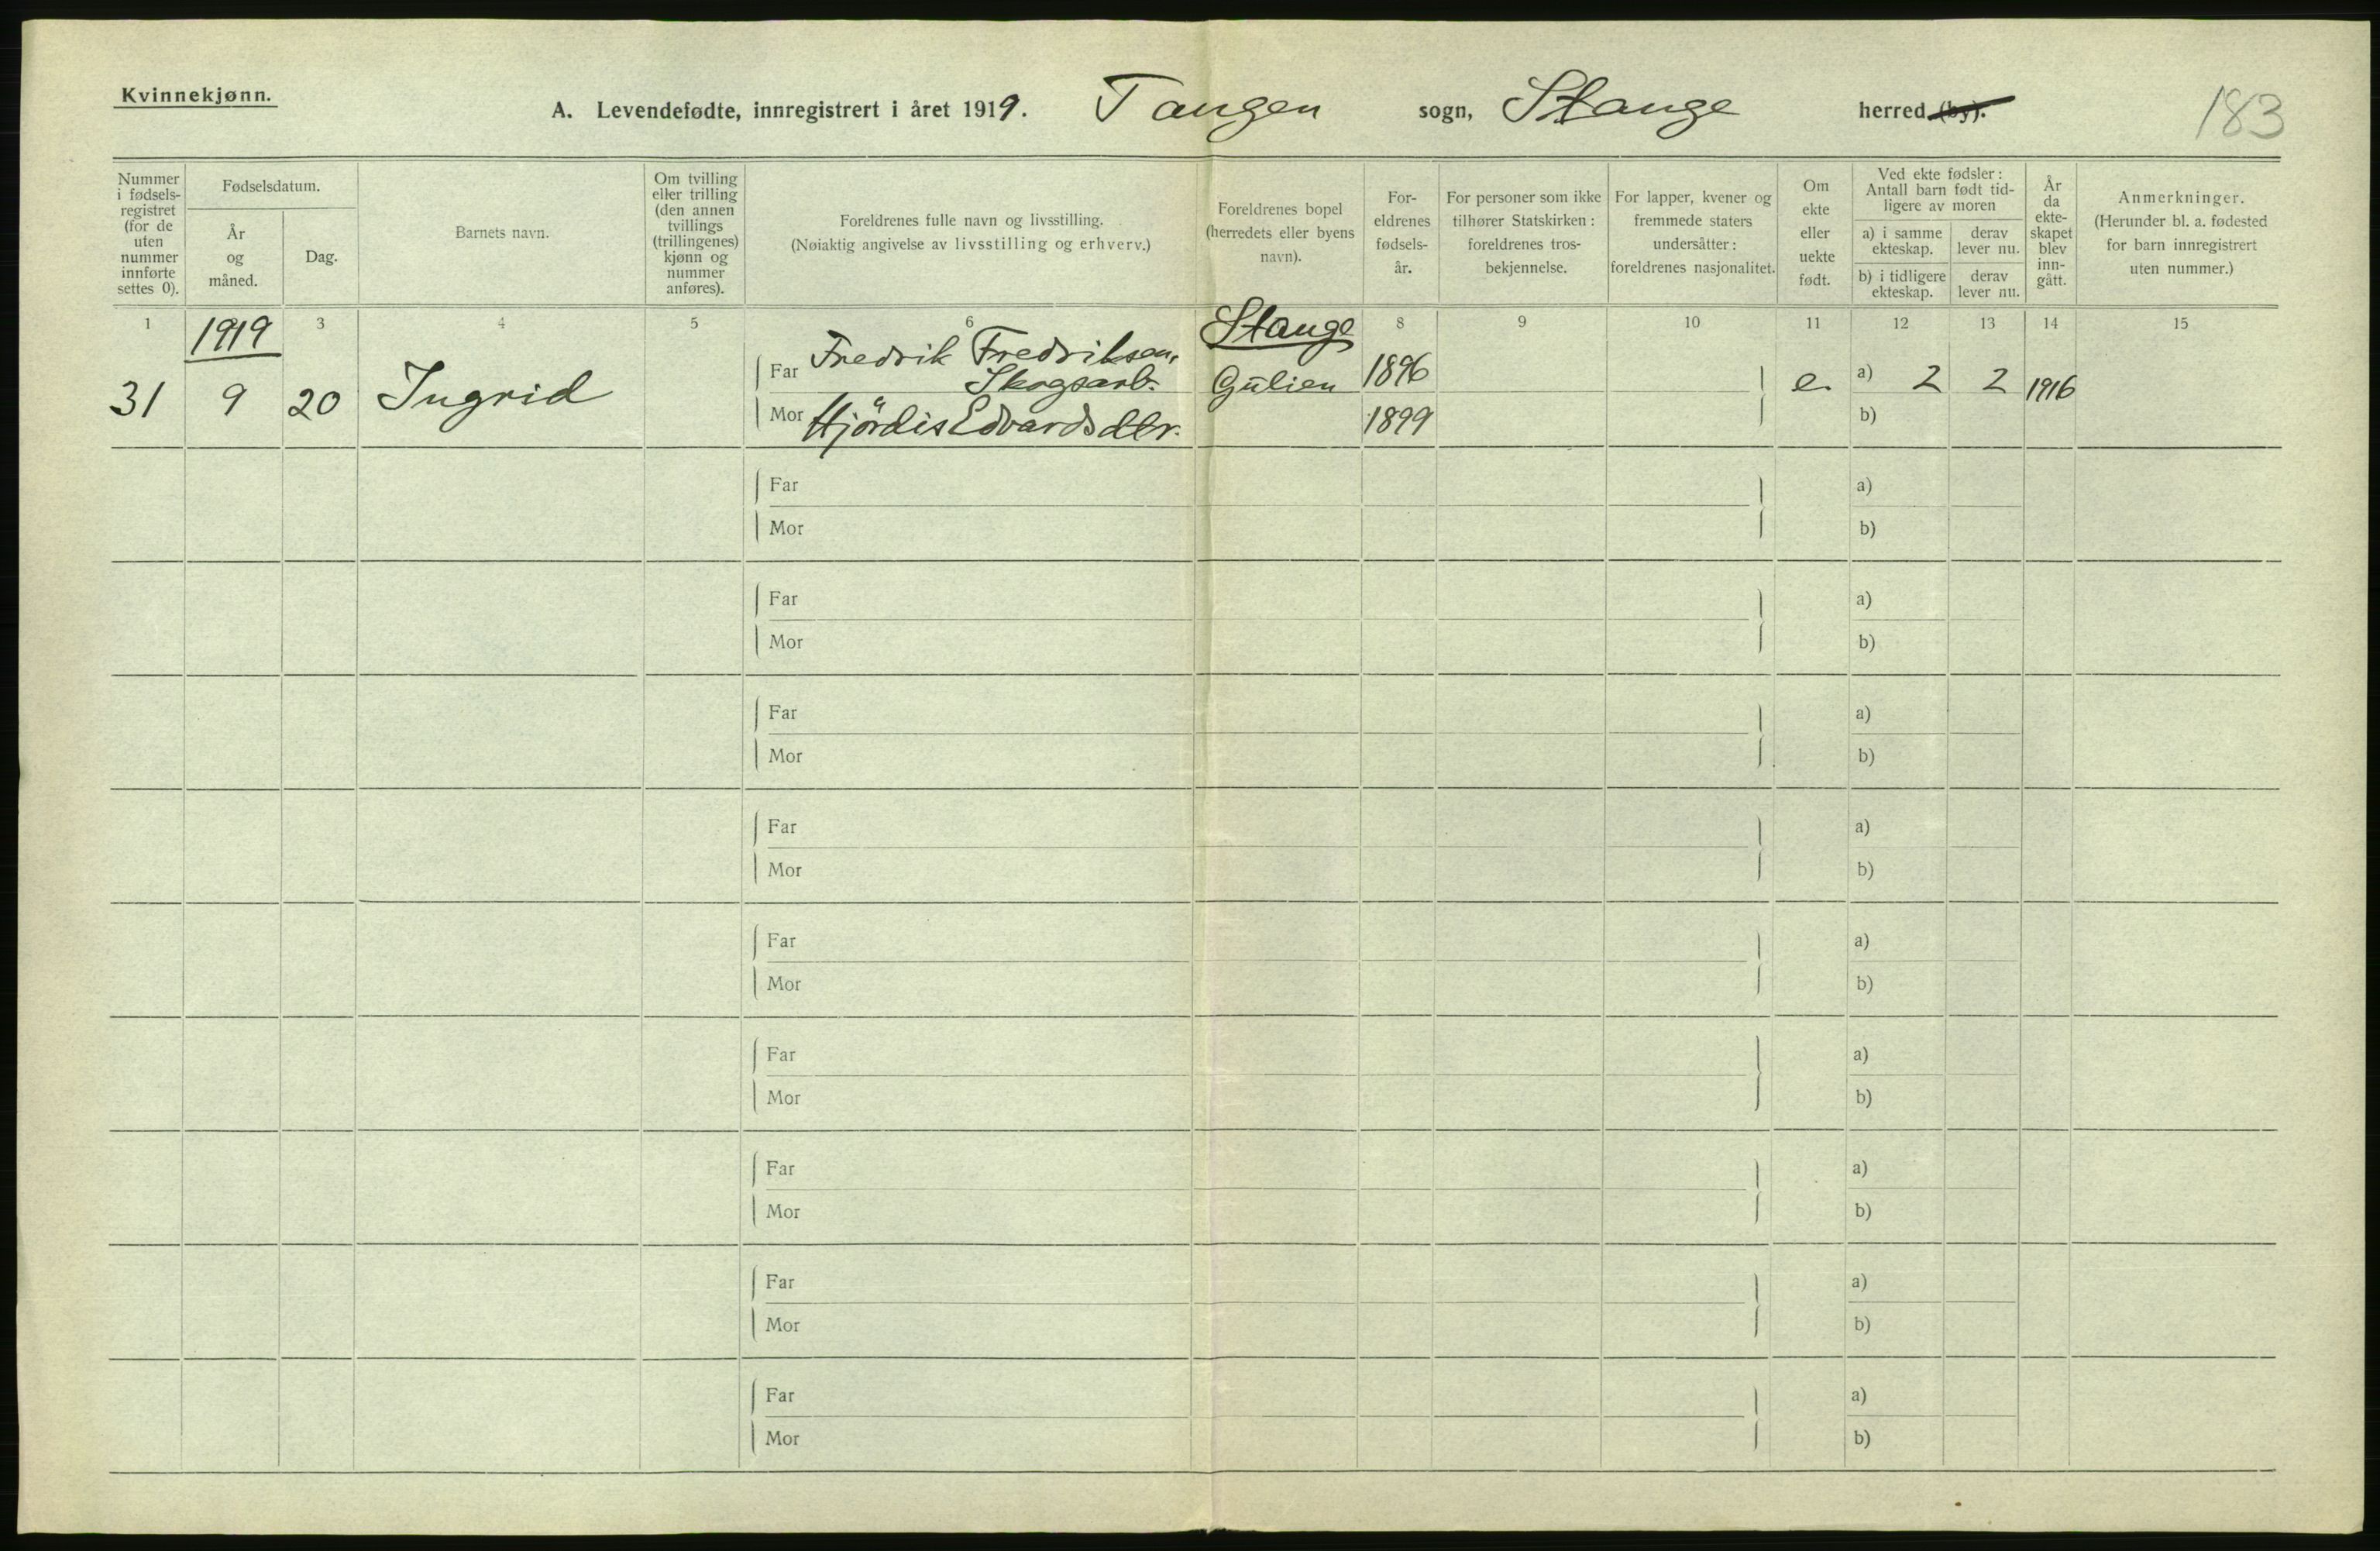 Kvinnekjønn.
A. Levendefødte, innregistrert i året 1919. Tangen sogn, Stange herred (by).
183
Nummer i fødsels-registret (for de uten nummer innførte settes 0).
Fødselsdatum.
År og måned.
Dag.
Barnets navn.
Om tvilling eller trilling (den annen tvillings (trillingenes) kjønn og nummer anføres).
Foreldrenes fulle navn og livsstilling.
(Nøiaktig angivelse av livsstilling og erhverv.)
Foreldrenes bopel (herredets eller byens navn).
For-eldrenes fødsels-år.
For personer som ikke tilhører Statskirken: foreldrenes tros-bekjennelse.
For lapper, kvener og fremmede staters undersåtter: foreldrenes nasjonalitet.
Om ekte eller uekte født.
Ved ekte fødsler: Antall barn født tid-ligere av moren
a) i samme ekteskap.
derav lever nu.
b) i tidligere ekteskap.
derav lever nu.
År da ekte-skapet blev inn-gått.
Anmerkninger.
(Herunder bl. a. fødested for barn innregistrert uten nummer.)
1 3 4 5 6 8 9 10 11 12 13 14 15
1919 Stange
31 9 20 Ingrid
Far Fredrik Fredriksen, Skogsarb. Gulien 1896 e. a) 2 2 1916
Mor Hjördis Edvardsdtr. 1899 b)
Far a)
Mor b)
Far a)
Mor b)
Far a)
Mor b)
Far a)
Mor b)
Far a)
Mor b)
Far a)
Mor b)
Far a)
Mor b)
Far a)
Mor b)
Far a)
Mor b)